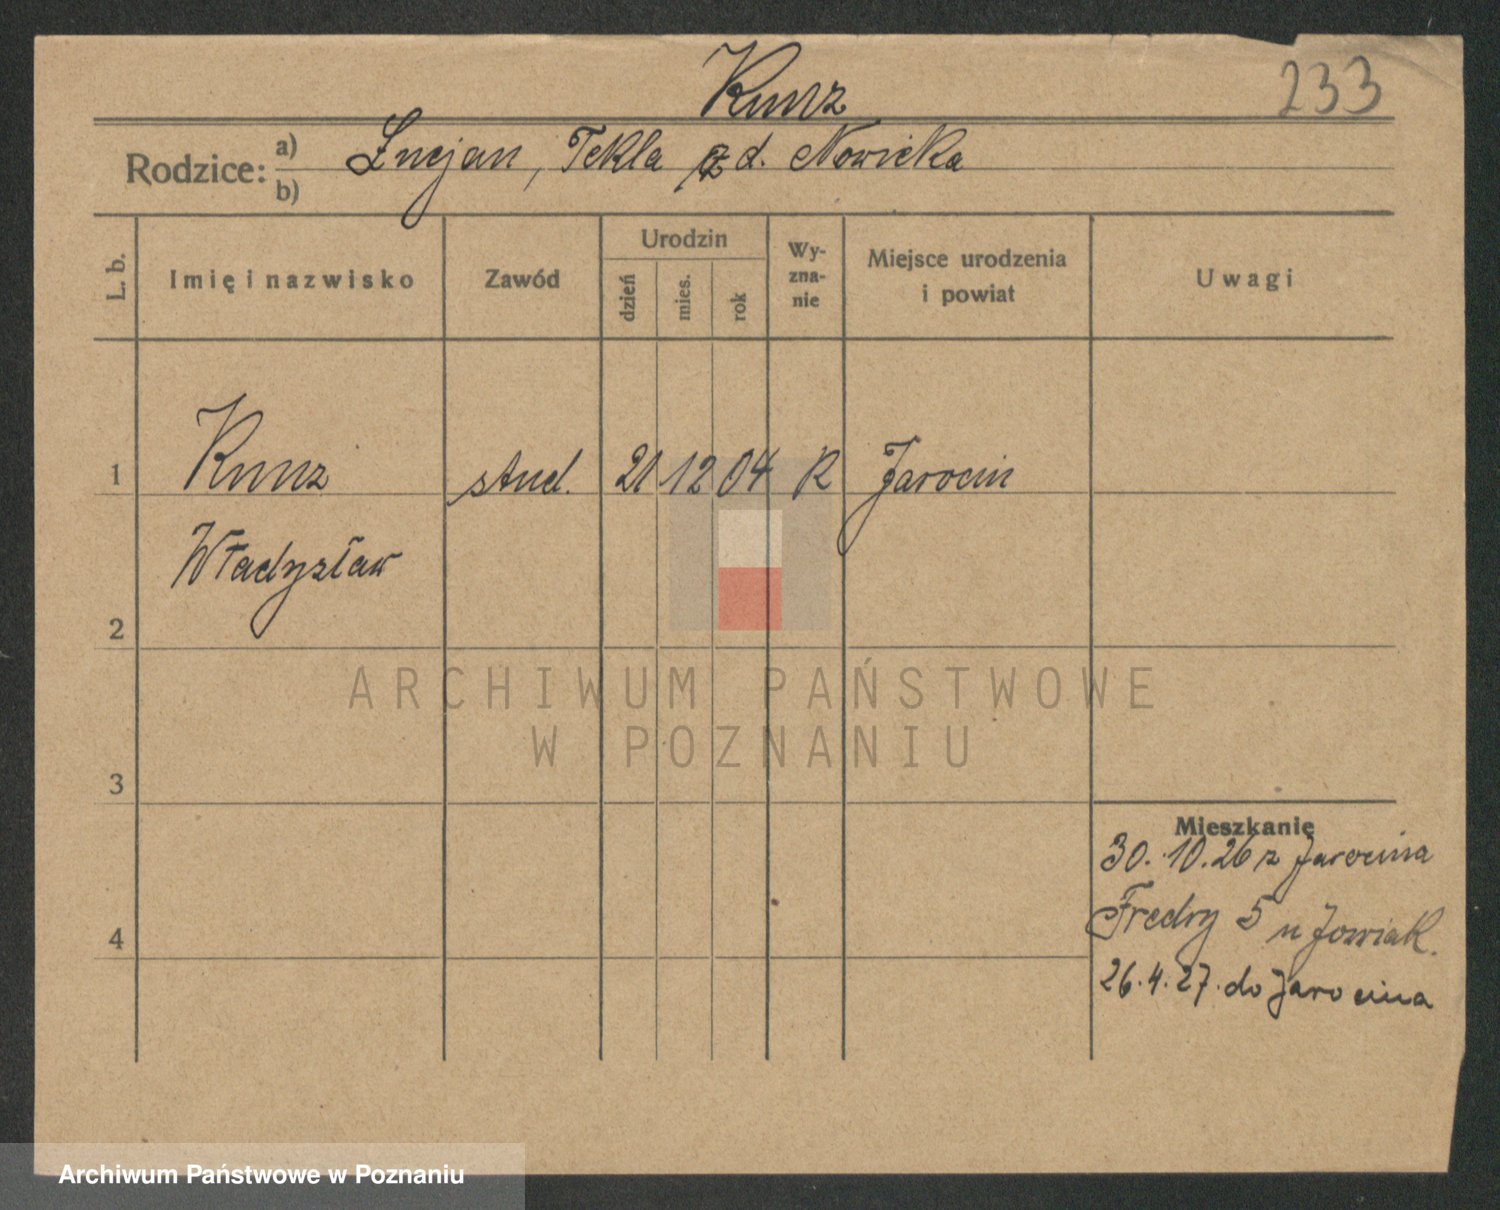 Kunz
233
Rodzice: a) Lucjan, Tekla z d. Nowicka
b)
L. b.
Imię i nazwisko
Zawód
Urodzin
dzień
mies.
rok
Wy-
zna-
nie
Miejsce urodzenia
i powiat
Uwagi
1 Kunz stud. 21 12 04 R Jarocin
Władysław
2
3
4
Mieszkanie
30.10.26 z Jarocina
Fredry 5 u Jowiak.
26.4.27. do Jarocina
ARCHIWUM PAŃSTWOWE
W POZNANIU
Archiwum Państwowe w Poznaniu